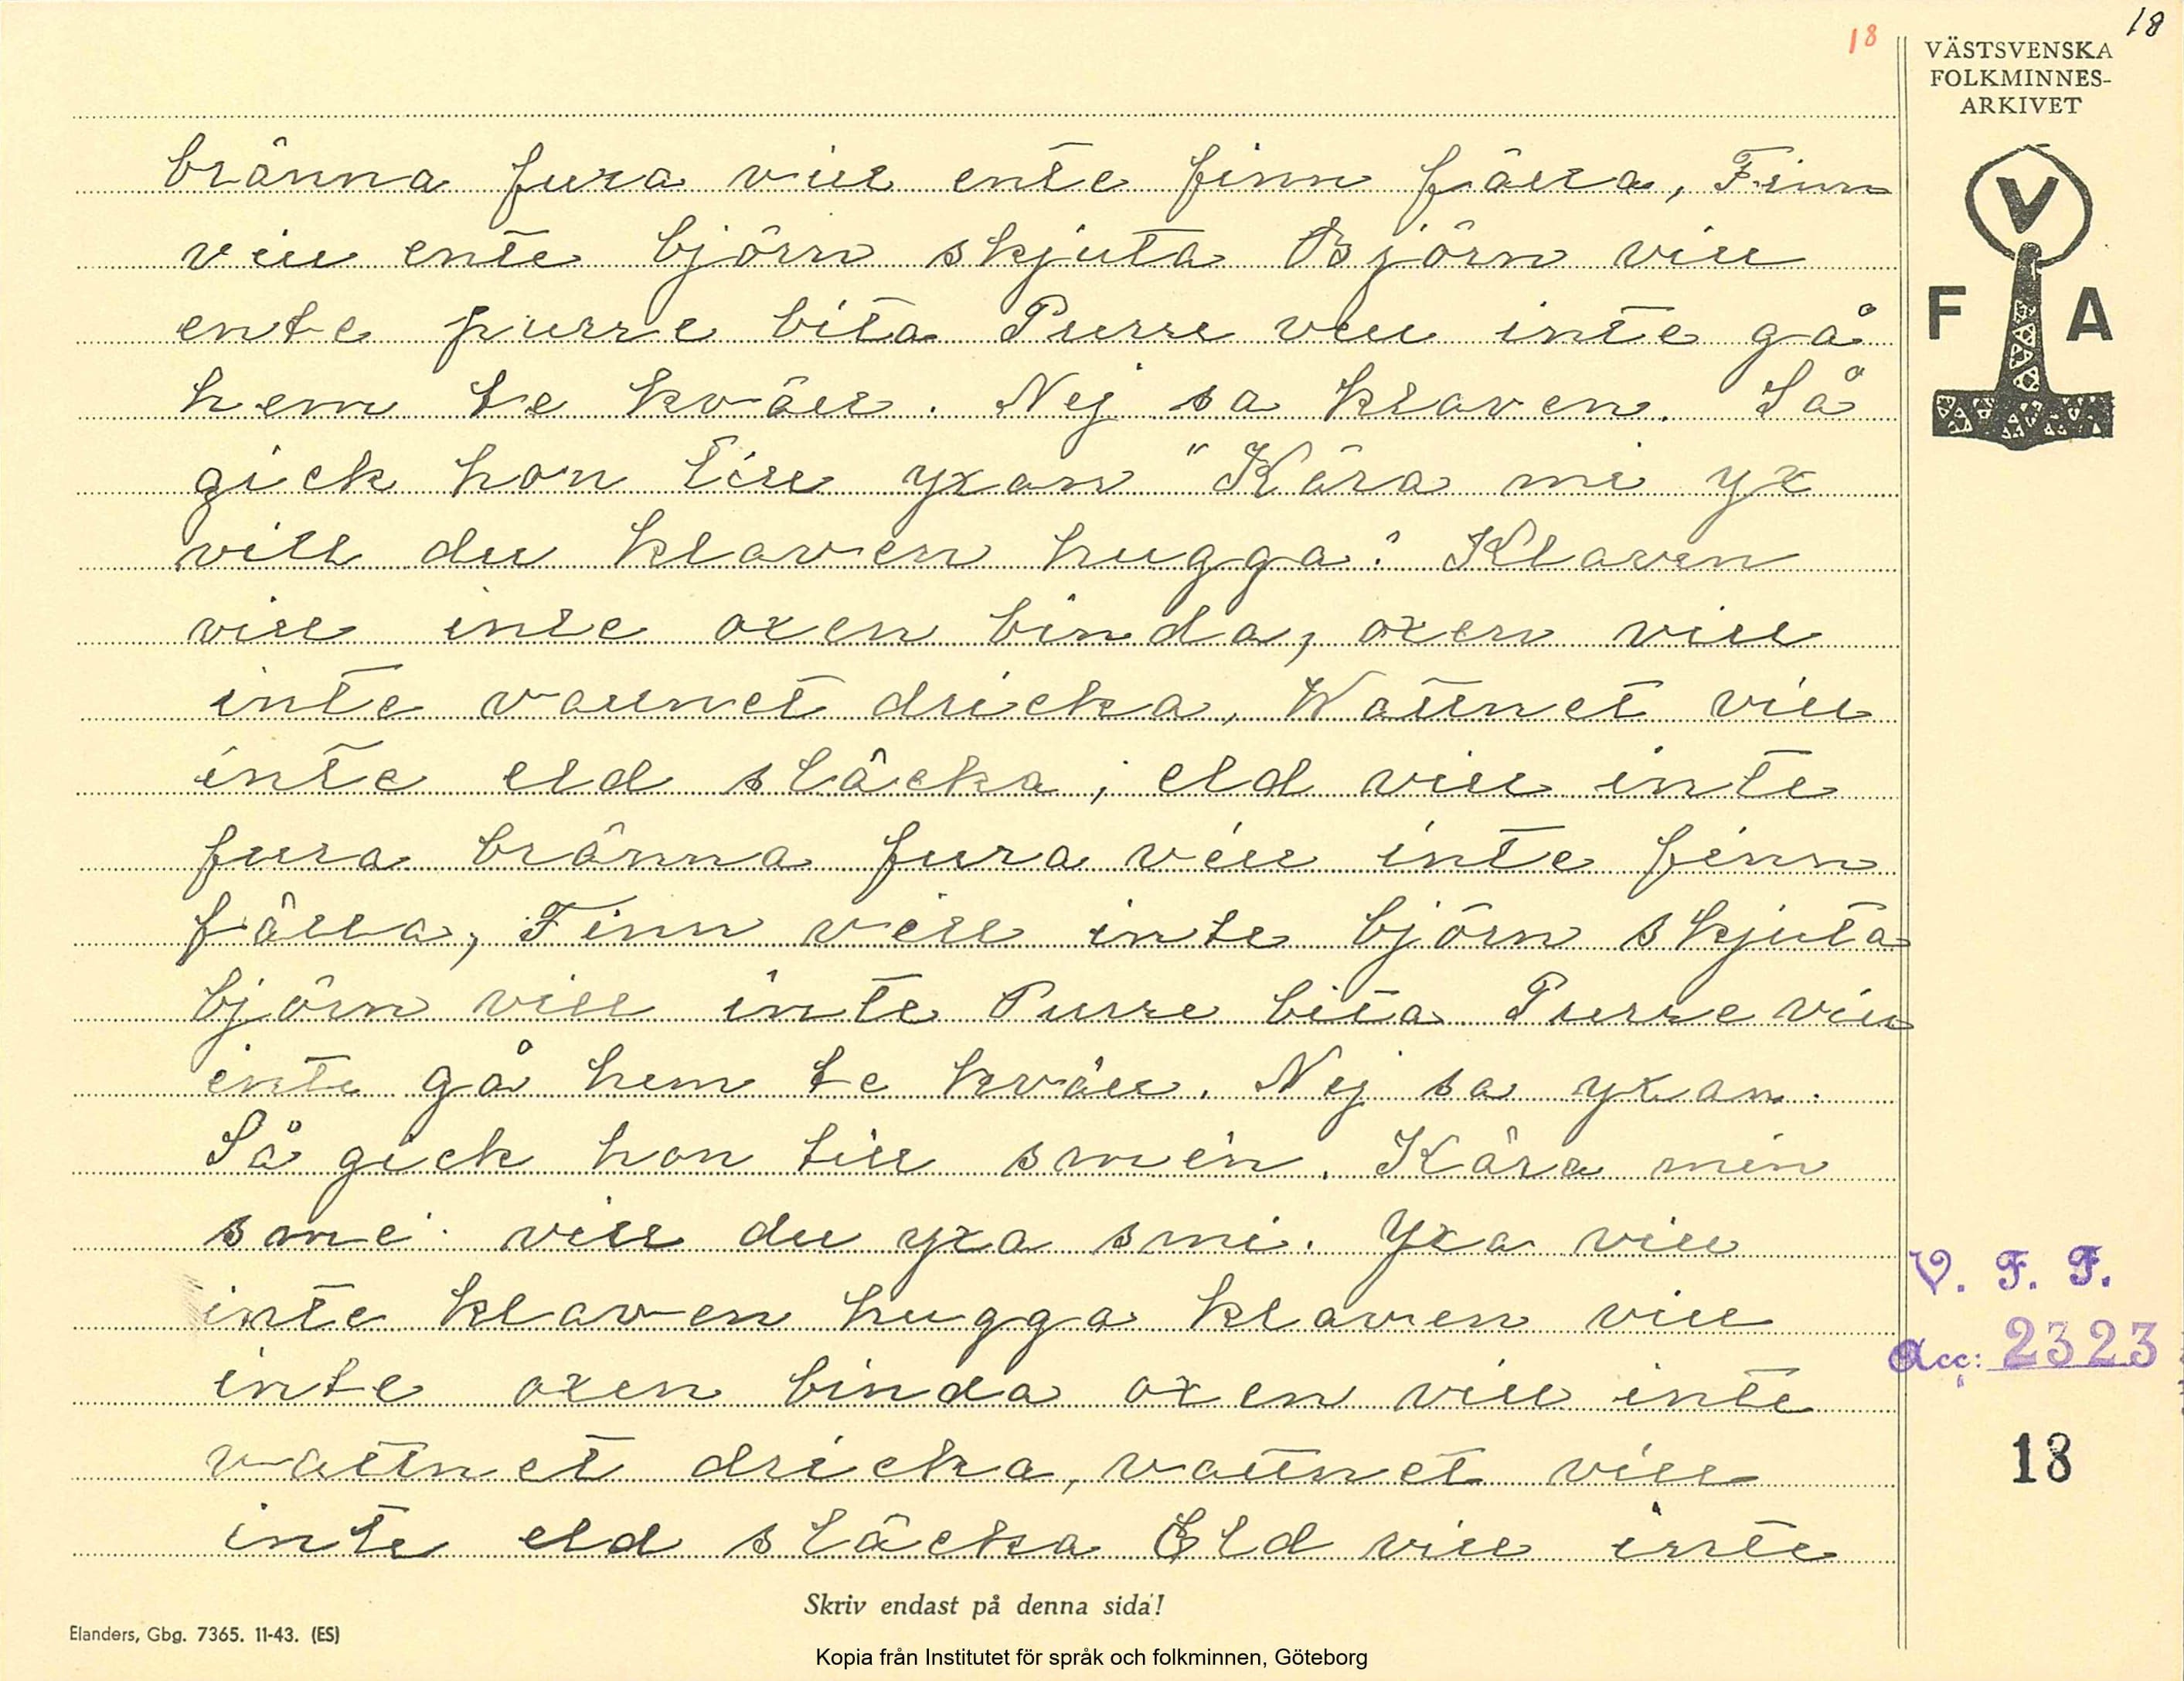 18
18
VÄSTSVENSKA
FOLKMINNES-
ARKIVET
V
F A
bränna fura vill ente finn fälla, Finn
vill ente björn skjuta Björn vill
ente purre bita Purre vill inte gå
hem te kväll. Nej sa klaven. Så
gick hon till yxan "Kära mi yx
vill du klaven hugga: Klaven
vill inte oxen binda, oxen vill
inte vattnet dricka, Wattnet vill
inte eld släcka, eld vill inte
fura bränna fura vill inte finn
fälla, Finn vill inte björn skjuta
björn vill inte Purre bita Purre vill
inte gå hem te kväll. Nej sa yxan.
Så gick hon till smen. Kära min
sme: vill du yxa smi. Yxa vill
inte klaven hugga klaven vill
inte oxen binda oxen vill inte
vattnet dricka, vattnet vill
inte eld släcka Eld vill inte
V. F. F.
Acc: 2323
18
Skriv endast på denna sida!
Elanders, Gbg. 7365. 11-43. (ES)
Kopia från Institutet för språk och folkminnen, Göteborg